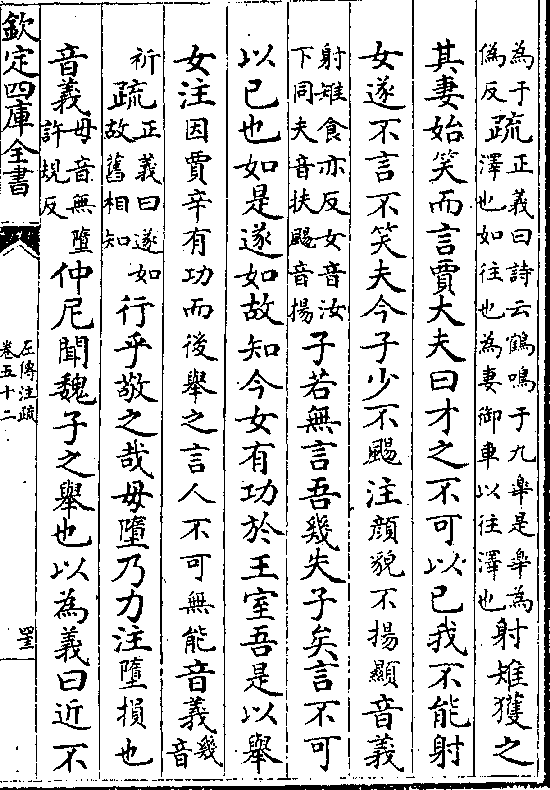 為于偽反疏正義曰詩云鶴鳴于九臯是臯為澤也如往也為妻御車以往澤也射雉獲之
其妻始笑而言賈大夫曰才之不可以已我不能射
女遂不言不笑夫今子少不颺注顔貌不揚顯音義
射雉食亦反女音汝下同夫音扶颺音揚子若無言吾幾失子矣言不可
以已也如是遂如故知今女有功於王室吾是以舉
女注因賈辛有功而後舉之言人不可無能音義幾音
祈疏正義曰遂如故舊相知行乎敬之哉毋墮乃力注墮損也
音義毋音無墮許規反仲尼聞魏子之舉也以為義曰近不
欽定四庫全書
左傳注疏
卷五十二